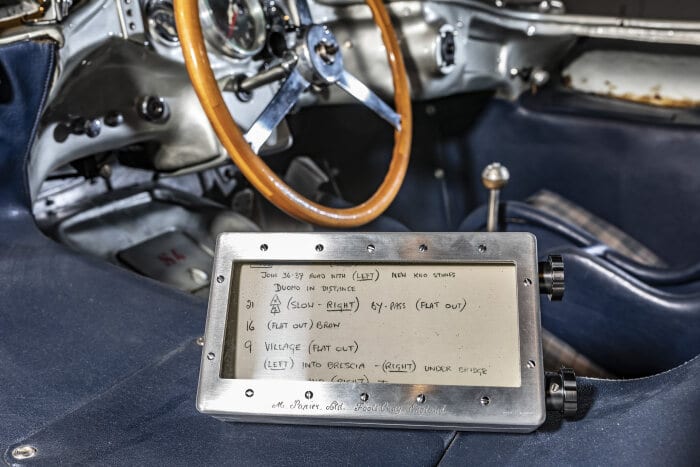 JOIN 36-37 ROAD WITH (LEFT) NEW KILO STONES
DUOMO IN DISTANCE
21 (SLOW - RIGHT) BY-PASS (FLAT OUT)
16 (FLAT OUT) BROW
9 VILLAGE (FLAT OUT)
(LEFT) INTO BRESCIA - (RIGHT) UNDER BRIDGE
AND (RIGHT)
Ltd. England